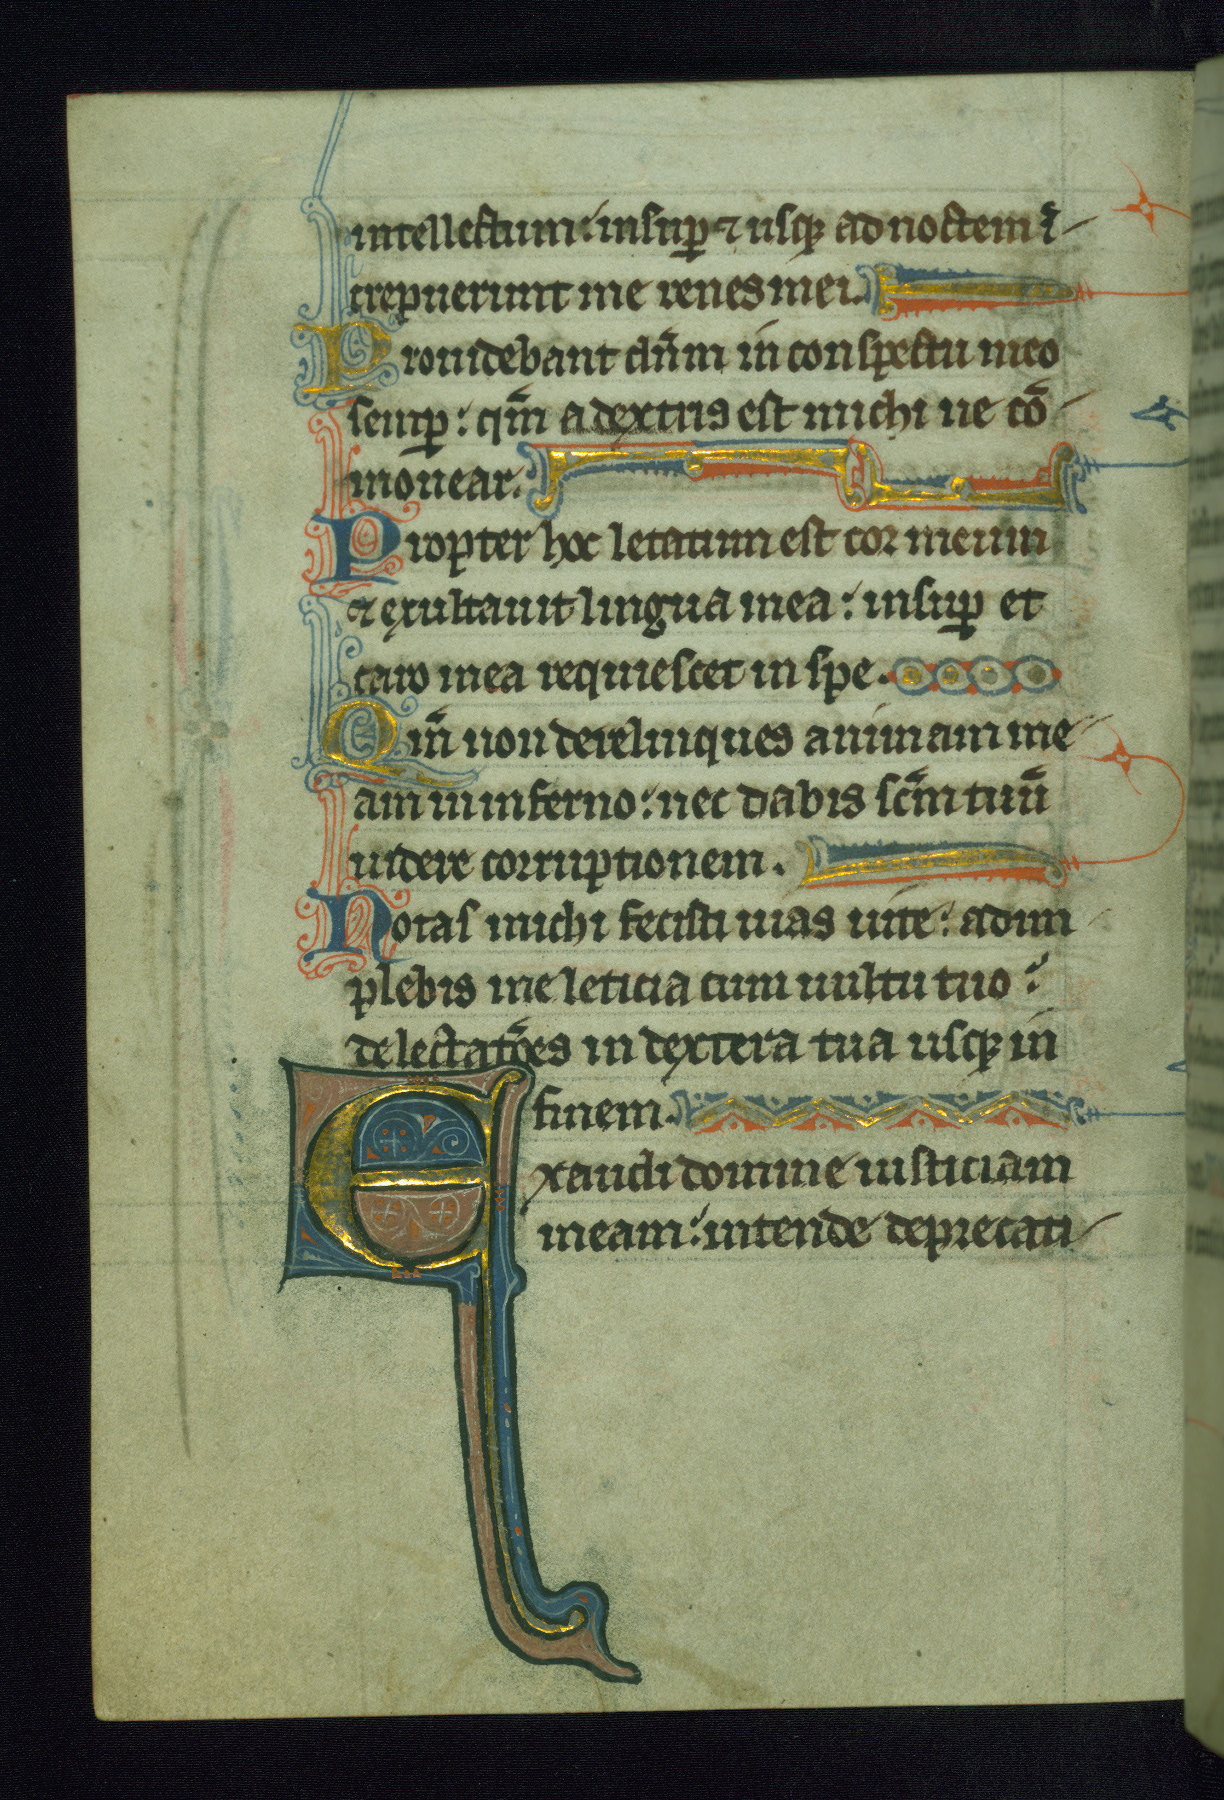 intellectum: insup̱ ⁊ usq̱ ad noctem ī
crepuerunt me renes mei.
Prouidebant dn̄m in conspectu meo
semp̱: qm̄ a dextris est michi ne cō
mouear.
Propter hoc letatum est cor meum
⁊ exultauit lingua mea: insup̱ et
caro mea requiescet in spe.
Qm̄ non derelinques animam me
am in inferno: nec dabis scm̄ tuū
uidere corruptionem.
Notas michi fecisti uias uite: adim
plebis me leticia cum uultu tuo:
delectatōes in dextera tua usq̱ in
finem.
Exaudi domine iusticiam
meam: intende deprecati